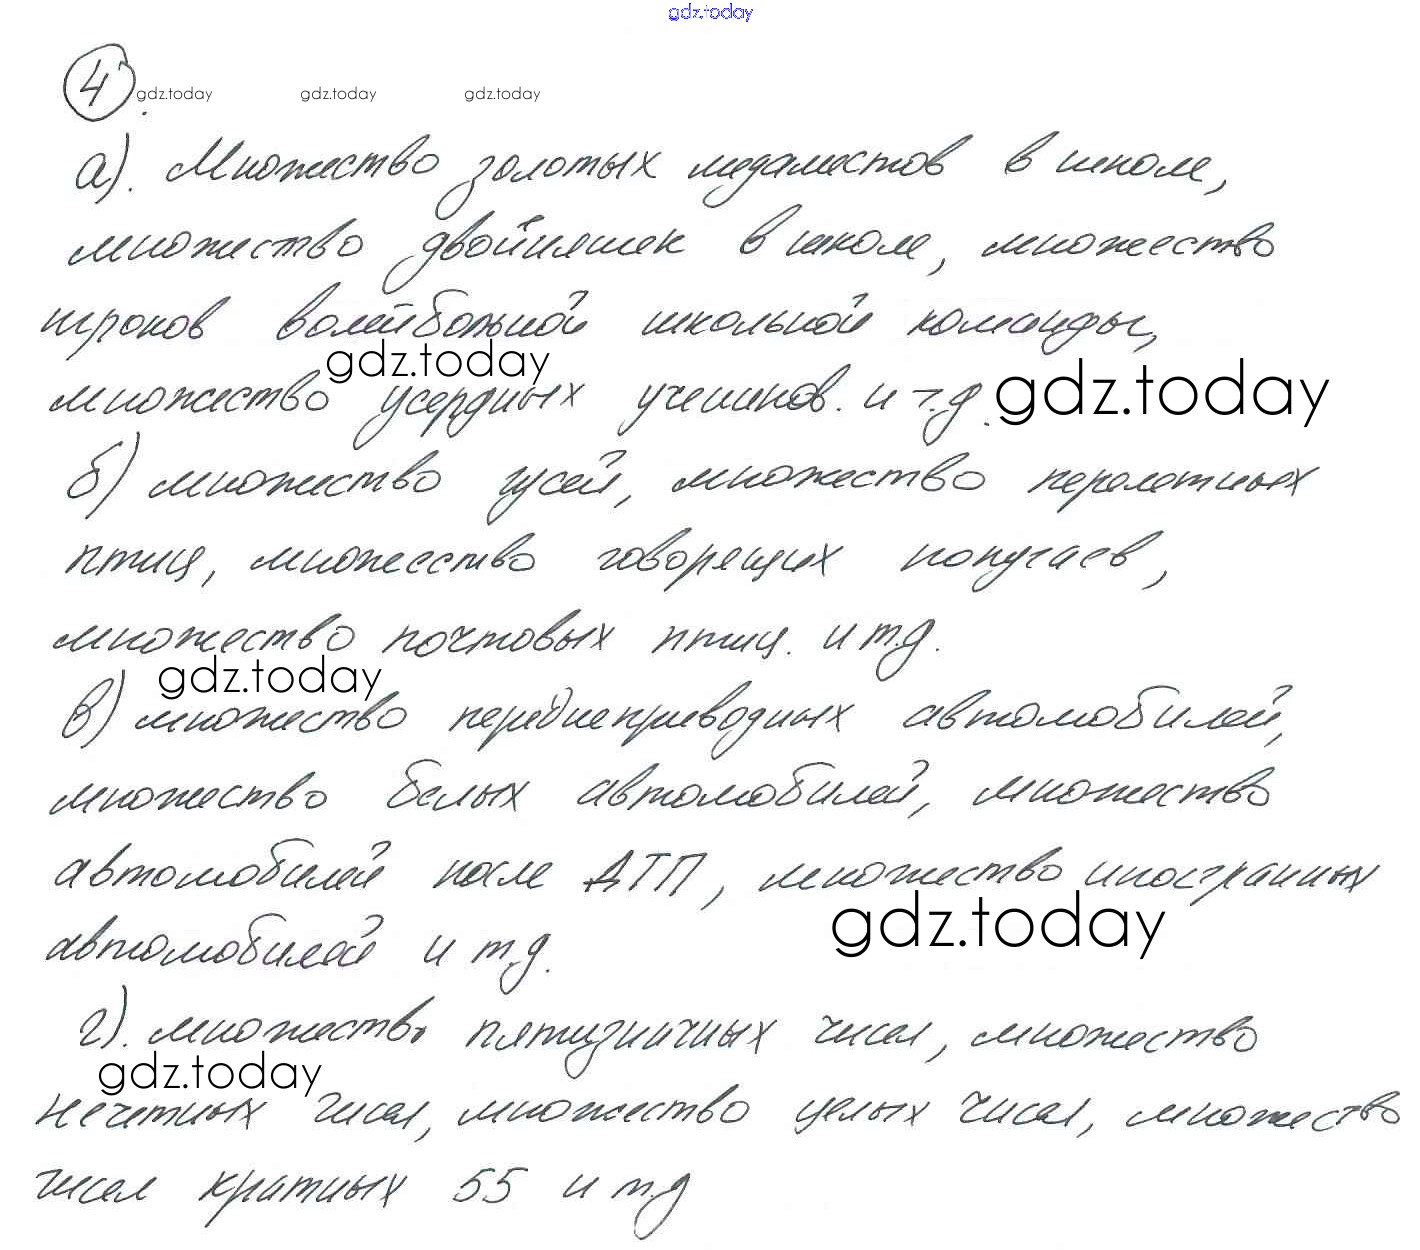 gdz.today
4.
gdz.today gdz.today gdz.today
а). Множество золотых медалистов в школе,
множество двойняшек в школе, множество
игроков волейбольной школьной команды,
gdz.today
множество усердных учеников. и т.д.
gdz.today
б) множество гусей, множество перелетных
птиц, множество говорящих попугаев,
множество почтовых птиц. и т.д.
gdz.today
в) множество переднеприводных автомобилей,
множество белых автомобилей, множество
автомобилей после ДТП, множество иностранных
gdz.today
автомобилей и т.д.
г). множество пятизначных чисел, множество
gdz.today
нечетных чисел, множество целых чисел, множество
чисел кратных 55 и т.д